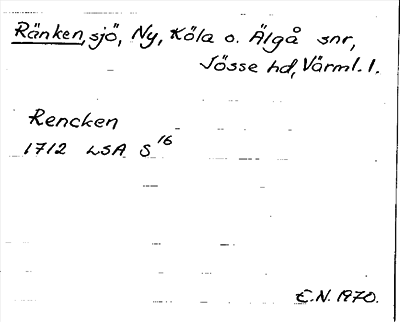 Ränken, sjö, Ny, Köla o. Älgå snr,
Jösse hd, Värml. l.
Rencken
1712 LSA S 16
E.N. 1970.